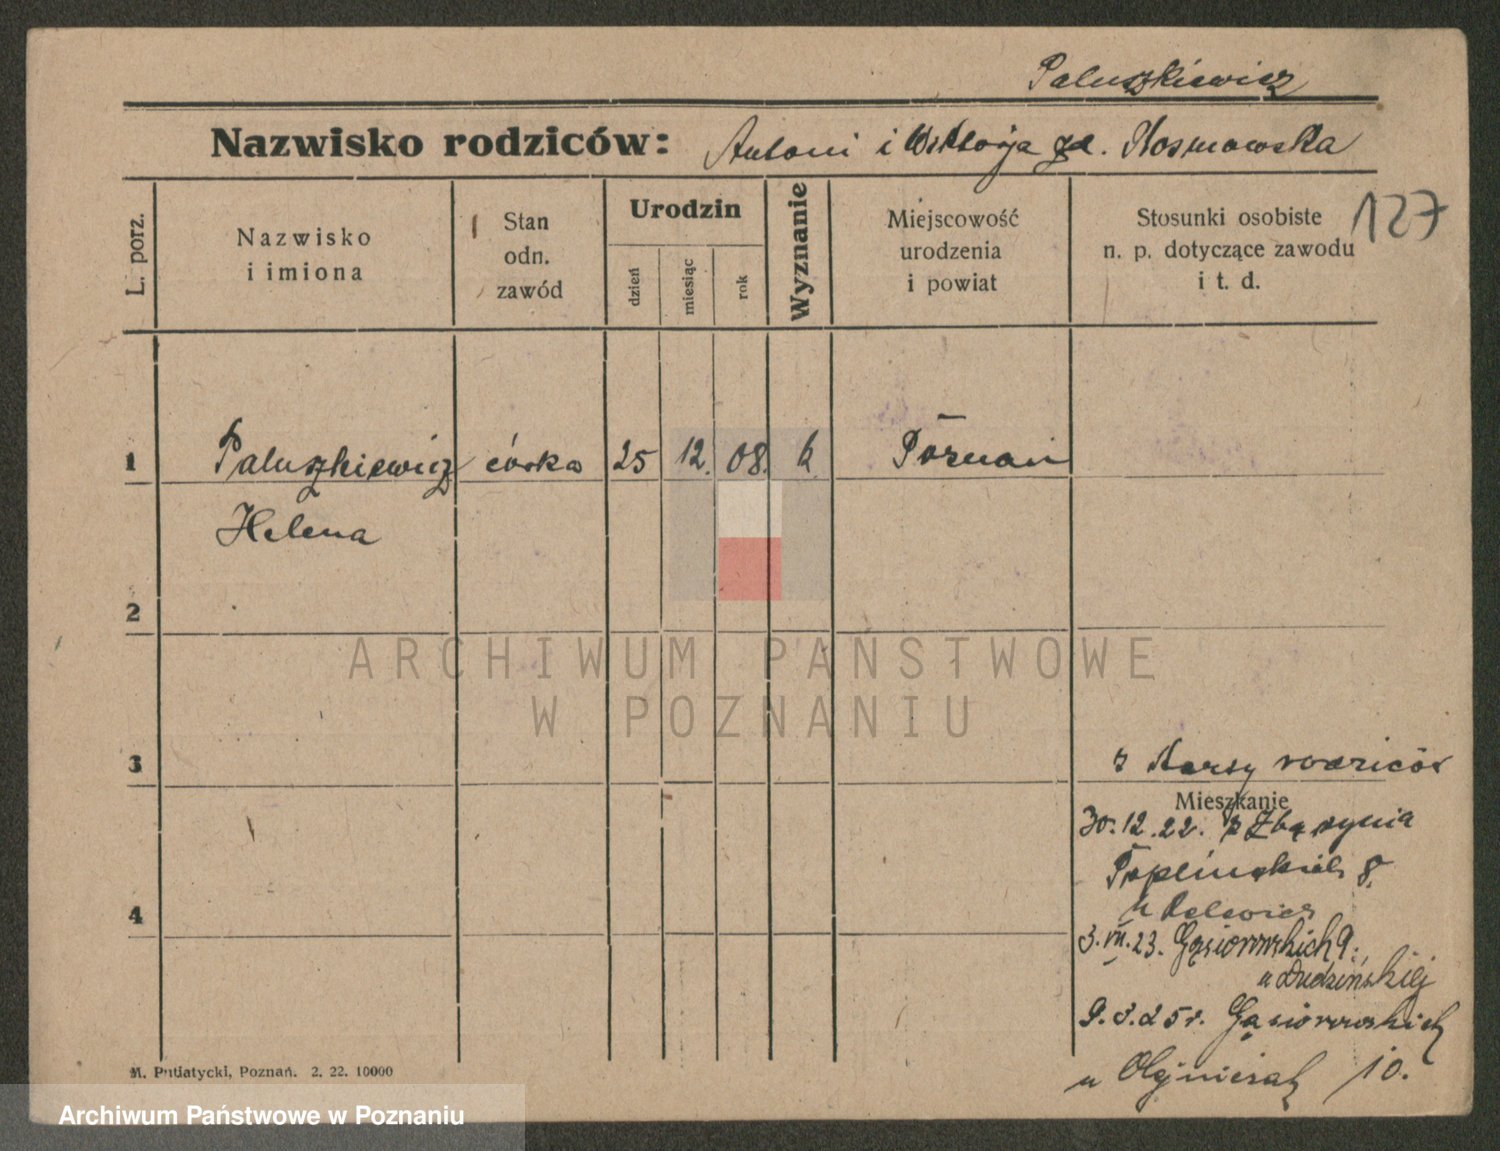 Paluszkiewicz
Nazwisko rodziców: Antoni i Wiktorja zd. Kosmowska
127
L. porz.
Nazwisko
i imiona
Stan
odn.
zawód
Urodzin
dzień
miesiąc
rok
Wyznanie
Miejscowość
urodzenia
i powiat
Stosunki osobiste
n. p. dotyczące zawodu
i t. d.
1 Paluszkiewicz córka 25 12. 08. k. Poznań
Helena
2
ARCHIWUM PAŃSTWOWE
W POZNANIU
3
z Karty rodziców
Mieszkanie
30.12.22. z Zbąszynia
8.
u
4
3.VII.23. Gąsiorowskich 9.
u Dudzińskiej
9.3.25r. Gąsiorowskich
u 10.
M. Putiatycki, Poznań. 2. 22. 10000
Archiwum Państwowe w Poznaniu